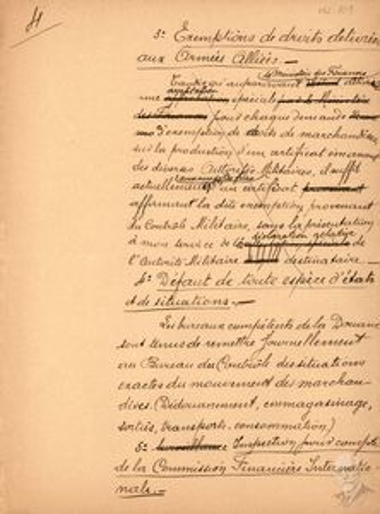 4
3º Exemptions de droits délivrées
aux Armées Alliées.—
le Ministère des Finances
Tandis qu'auparavant
une spéciale
pour chaque demande
d'exemption de droits de marchandises
sur la production d'un certificat émanant
des diverses Autorités Militaires, il suffit
actuellement un certificat
affirmant la dite exemption provenant
du Contrôle Militaire, sans la présentation
déclaration relative
à mon service de la de
l'Autorité Militaire destinataire.—
4º Défaut de toute espèce d'états
et de situations.—
Les bureaux compétents de la Douane
sont tenus de remettre journellement
au Bureau du Contrôle des situations
exactes du mouvement des marchan-
dises. (Dédouanement, emmagasinage,
sorties, transports, consommation)
5º Inspection pour compte
de la Commission Financière Internatio-
nale.—